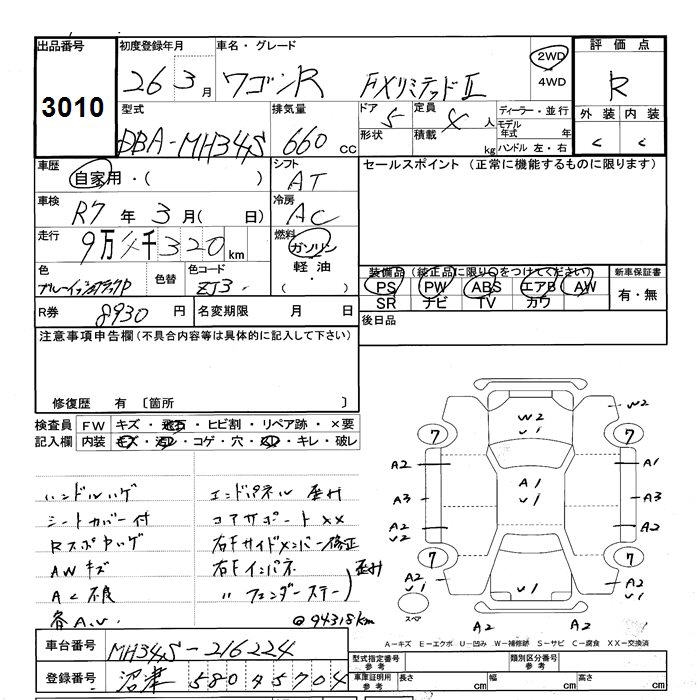 出品番号 初度登録年月 車名・グレード 評価点
3010 26 3月 ワゴンR FXリミテッドII 2WD R
4WD
型式 排気量 ドア 定員 ディーラー・並行 外装 内装
DBA-MH34S 660cc 5 4人 モデル年式 年 C C
形状 積載 kg ハンドル 左・右
車歴 シフト セールスポイント (正常に機能するものに限ります)
自家用・( ) AT
車検 冷房
R7年3月( 日) AC
走行 燃料
9万4千320km ガソリン
軽油
・
( )
色 色替 色コード 装備品(純正品に限り○をつけてください) 新車保証書
ZJ3 PS PW ABS エアB AW 有・無
SR ナビ TV カワ
R券 8930円 名変期限 月 日 後日品
注意事項申告欄(不具合内容等は具体的に記入して下さい)
修復歴 有 〔箇所 〕
検査員 FW キズ・飛石・ヒビ割・リペア跡・×要
記入欄 内装 キズ・汚レ・コゲ・穴・スレ・キレ・破レ
ハンドルハゲ エンドパネル歪ミ
シートカバー付 コアサポートXX
RスポヤハゲR 右Fサイドメンバー修正
AWキズ 右Fインパネ 歪ミ
AC不良 〃 フェンダーステー
各A.U. @94318km
W2
W2
U1
7 7
A2 A1 A1
U1
A3 A3
A2 A2
U2
7 7
A2 U1 A2
A2 A2
スペア
A−キズ E−エクボ U−凹み W−補修跡 S−サビ C−腐食 XX−交換済
車台番号 MH34S-216224 型式指定番号 参考 類別区分番号 参考
登録番号 沼津 580 ソ 5704 車庫証明用 参考 長さ cm 幅 cm 高さ cm